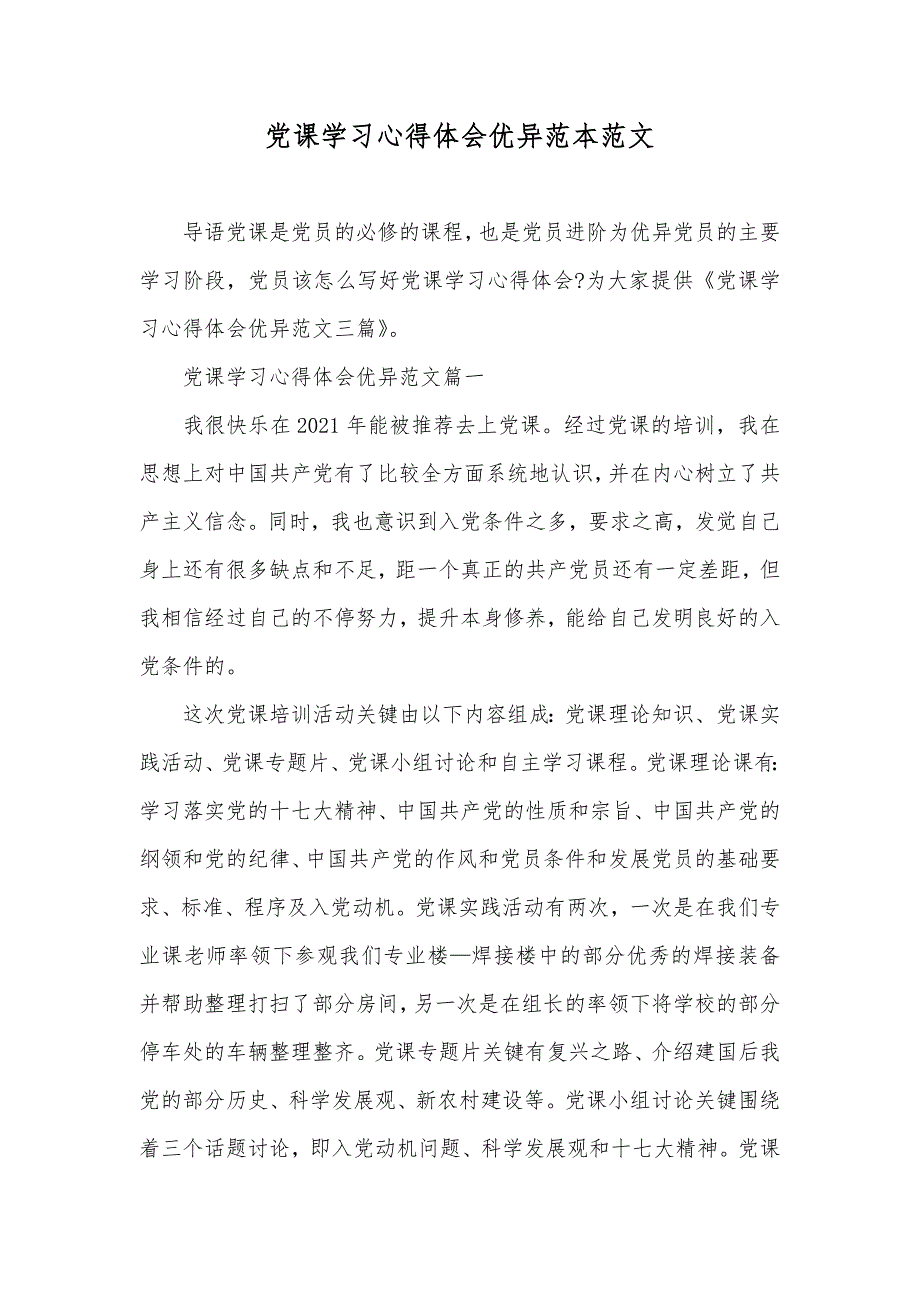 党课学习心得体会优异范本范文
导语党课是党员的必修的课程，也是党员进阶为优异党员的主要
学习阶段，党员该怎么写好党课学习心得体会?为大家提供《党课学
习心得体会优异范文三篇》。
党课学习心得体会优异范文篇一
我很快乐在 2021 年能被推荐去上党课。经过党课的培训，我在
思想上对中国共产党有了比较全方面系统地认识，并在内心树立了共
产主义信念。同时，我也意识到入党条件之多，要求之高，发觉自己
身上还有很多缺点和不足，距一个真正的共产党员还有一定差距，但
我相信经过自己的不停努力，提升本身修养，能给自己发明良好的入
党条件的。
这次党课培训活动关键由以下内容组成：党课理论知识、党课实
践活动、党课专题片、党课小组讨论和自主学习课程。党课理论课有：
学习落实党的十七大精神、中国共产党的性质和宗旨、中国共产党的
纲领和党的纪律、中国共产党的作风和党员条件和发展党员的基础要
求、标准、程序及入党动机。党课实践活动有两次，一次是在我们专
业课老师率领下参观我们专业楼—焊接楼中的部分优秀的焊接装备
并帮助整理打扫了部分房间，另一次是在组长的率领下将学校的部分
停车处的车辆整理整齐。党课专题片关键有复兴之路、介绍建国后我
党的部分历史、科学发展观、新农村建设等。党课小组讨论关键围绕
着三个话题讨论，即入党动机问题、科学发展观和十七大精神。党课